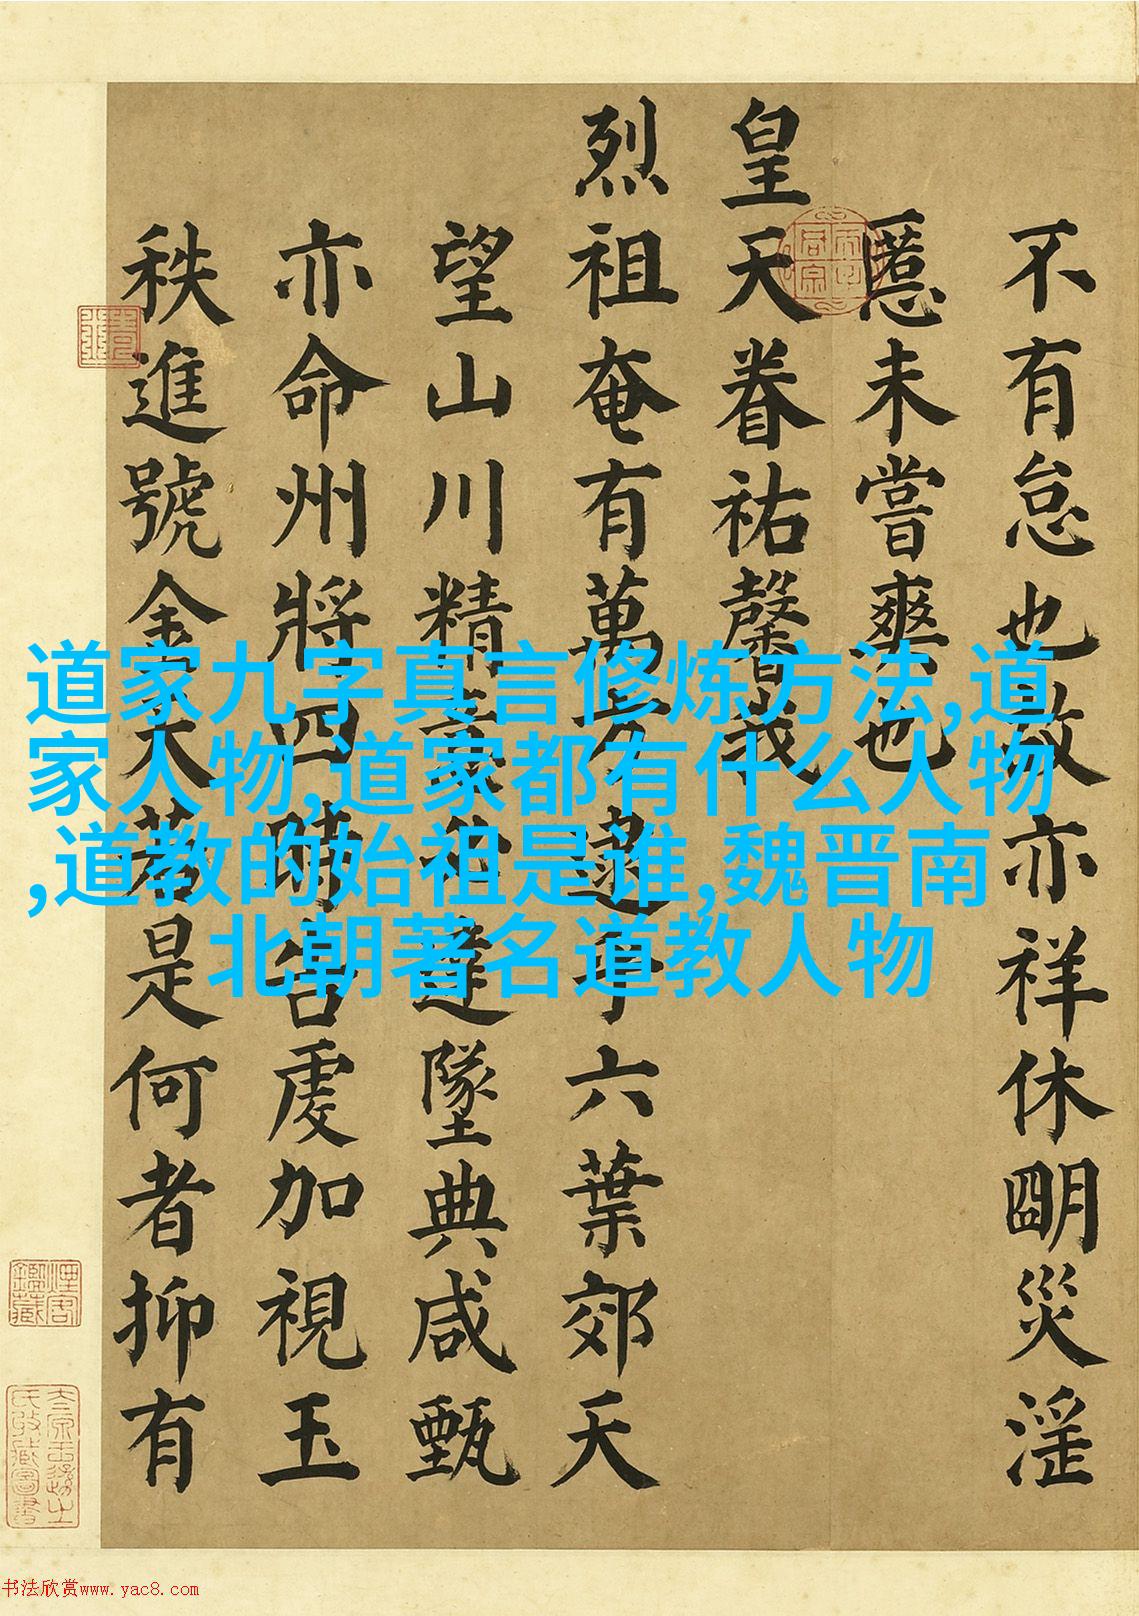 不有怠也故亦祥休明災淫
慝未嘗爽也
皇天眷祐馨我
烈祖奄有萬方逮乎六葉郊天
望山川精意家達墜典咸甄
亦命州將四時告虔加視王
秩進號金天若是何者抑有
道家九字真言修炼方法,道
家人物,道家都有什么人物
,道教的始祖是谁,魏晋南
北朝著名道教人物
书法欣赏www.yac8.com